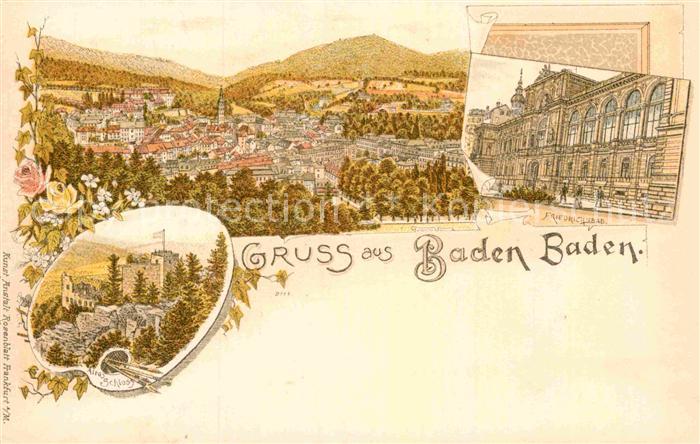 FRIEDRICHSBAD.
GRUSS aus Baden Baden.
Altes
Schloss
Kunst Anstalt Rosenblatt Frankfurt a/M.